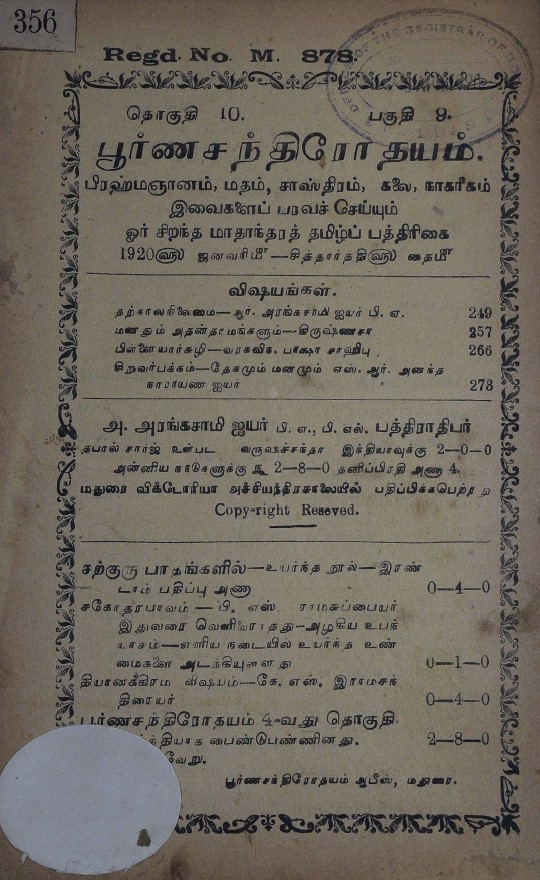 356
Regd. No. M. 878.
OF THE REGISTRAR OF
தொகுதி 10. பகுதி 9.
பூர்ணசந்திரோதயம்.
பிரஹ்மஞானம், மதம், சாஸ்திரம், கலை, நாகரீகம்
இவைகளைப் பரவச் செய்யும்
ஓர் சிறந்த மாதாந்தரத் தமிழ்ப் பத்திரிகை
1920௵ ஜனவரி௴—சித்தார்த்தி௵ தை௴
விஷயங்கள்.
தற்காலநிலைமை—ஆர். அரங்கசாமி ஐயர் பி. ஏ. 249
மனதும் அதன்தாமங்களும்—கிருஷ்ணசா 257
பிள்ளையார்சுழி—வரகவிக. பாக்ஷா சாஹிபு 266
சிறுவர்பக்கம்—தேகமும் மனமும் எஸ். ஆர். அனந்த
நாராயண ஐயர் 273
அ. அரங்கசாமி ஐயர் பி. ஏ., பி. எல். பத்திராதிபர்
தபால் சார்ஜ் உள்பட வருஷச்சந்தா இந்தியாவுக்கு 2—0—0
அன்னிய நாடுகளுக்கு ரூ 2—8—0 தனிப்பிரதி அணா 4.
மதுரை விக்டோரியா அச்சியந்திரசாலையில் பதிப்பிக்கபெற்றது
Copy-right Reseved.
சற்குரு பாதங்களில்—உயர்ந்த நூல்—இரண்
டாம் பதிப்பு அணா 0—4—0
சகோதரபாவம்—பி. எஸ். ராமசுப்பையர்
இதுவரை வெளிவராதது—அழகிய உபந்
யாசம்—எளிய நடையில் உயர்ந்த உண்
மைகளை அடக்கியுளளது 0—1—0
தியானக்கிரம விஷயம்—கே. எஸ். இராமசந்
திரையர் 0—4—0
பூர்ணசந்திரோதயம் 4-வது தொகுதி.
பைண்டுபண்ணினது. 2—8—0
வேறு.
பூர்ணசந்திரோதயம் ஆபீஸ், மதுரை.